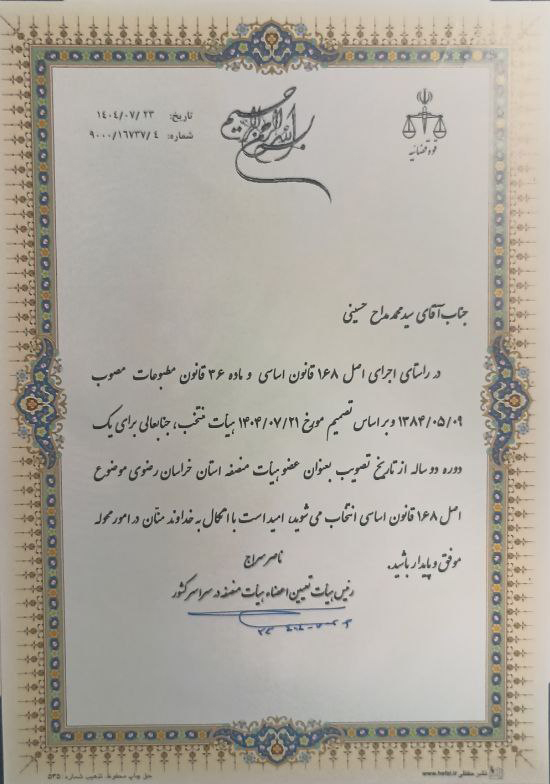 بسم الله الرحمن الرحیم
قوه قضائیه
تاریخ: ۱۴۰۴/۰۷/۲۳
شماره: ۹۰۰۰/۱۶۷۳۷/۴
جناب آقای سید محمد مداح حسینی
در راستای اجرای اصل ۱۶۸ قانون اساسی و ماده ۳۶ قانون مطبوعات مصوب
۱۳۸۴/۰۵/۰۹ و بر اساس تصمیم مورخ ۱۴۰۴/۰۷/۲۱ هیأت منتخب، جنابعالی برای یک
دوره دو ساله از تاریخ تصویب بعنوان عضو هیأت منصفه استان خراسان رضوی موضوع
اصل ۱۶۸ قانون اساسی انتخاب می شوید، امید است با اتکال به خداوند منان در امور محوله
موفق و پایدار باشید.
ناصر سراج
رئیس هیأت تعیین اعضاء هیأت منصفه در سراسر کشور
حق چاپ محفوظ، تذهیب شماره: ۵۳۵
نشر حفظی www.hefzi.ir